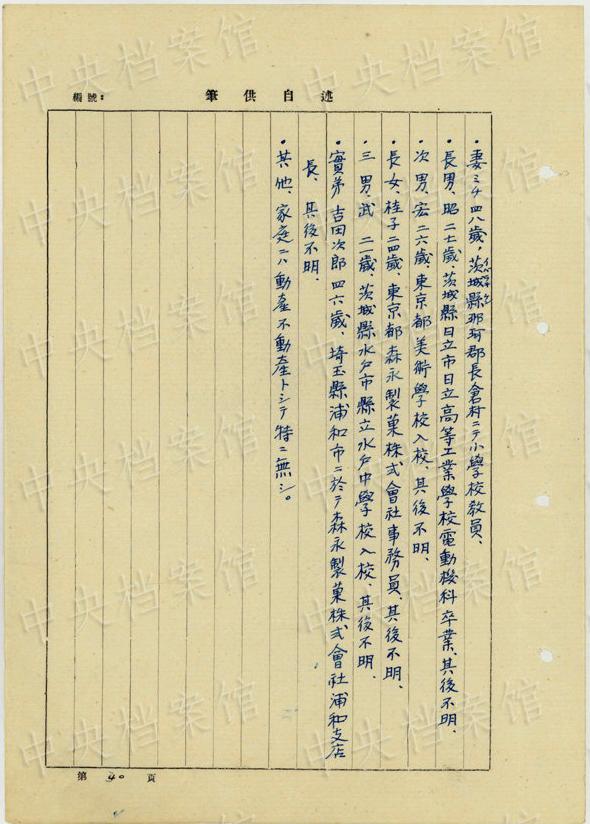 編號：
述自供筆
・妻ミチ四八歳、茨城縣那珂郡長倉村ニテ小學校教員、
・長男、昭二七歳、茨城縣日立市日立高等工業學校電動機科卒業、其後不明、
・次男、宏二六歳、東京都美術學校入校、其後不明、
・長女、桂子二四歳、東京都森永製菓株式會社事務員、其後不明、
・三男、武二一歳、茨城縣水戸市縣立水戸中學校入校、其後不明、
・實弟吉田次郎四六歳、埼玉縣浦和市ニ於テ森永製菓株式會社浦和支店
長、其後不明、
・其他、家庭ニハ動産不動産トシテ特ニ無シ。
第 40 頁
中央档案馆